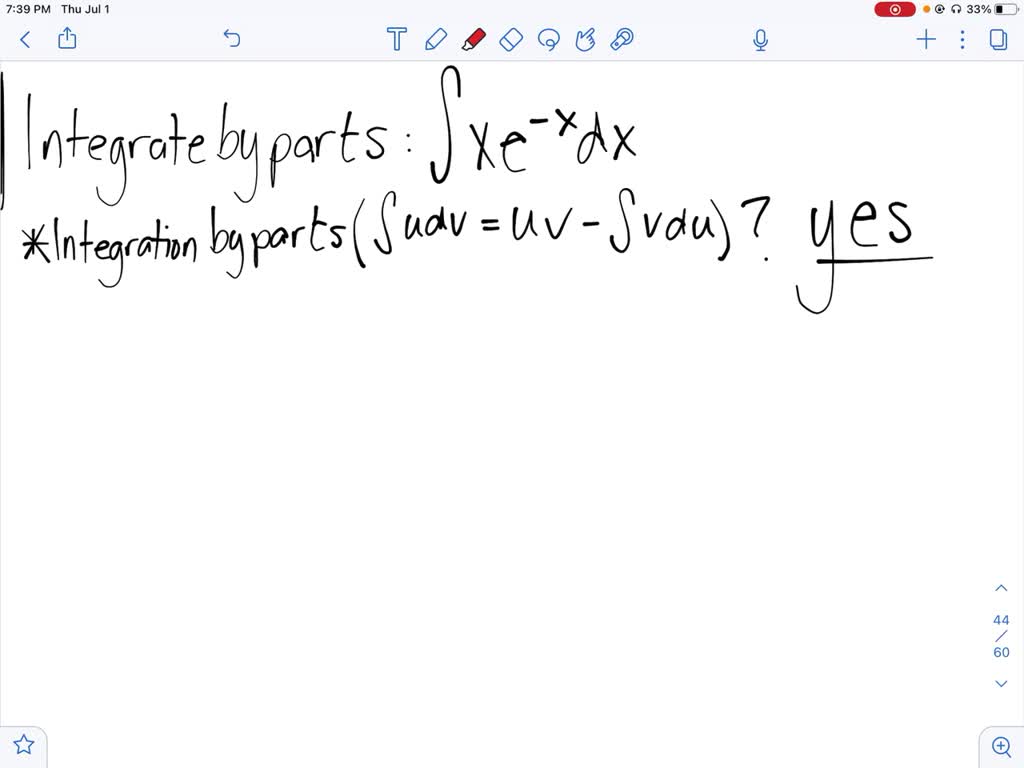 7:39 PM Thu Jul 1 33%
T
Integrate by parts: ∫xe⁻ˣdx
*Integration by parts (∫udv = uv - ∫vdu)? yes
44
/
60